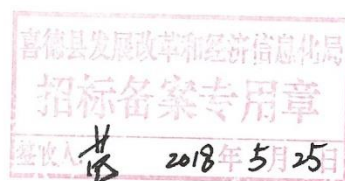 喜德县发展改革和经济信息化局
招标备案专用章
签收人 2018年5月25日